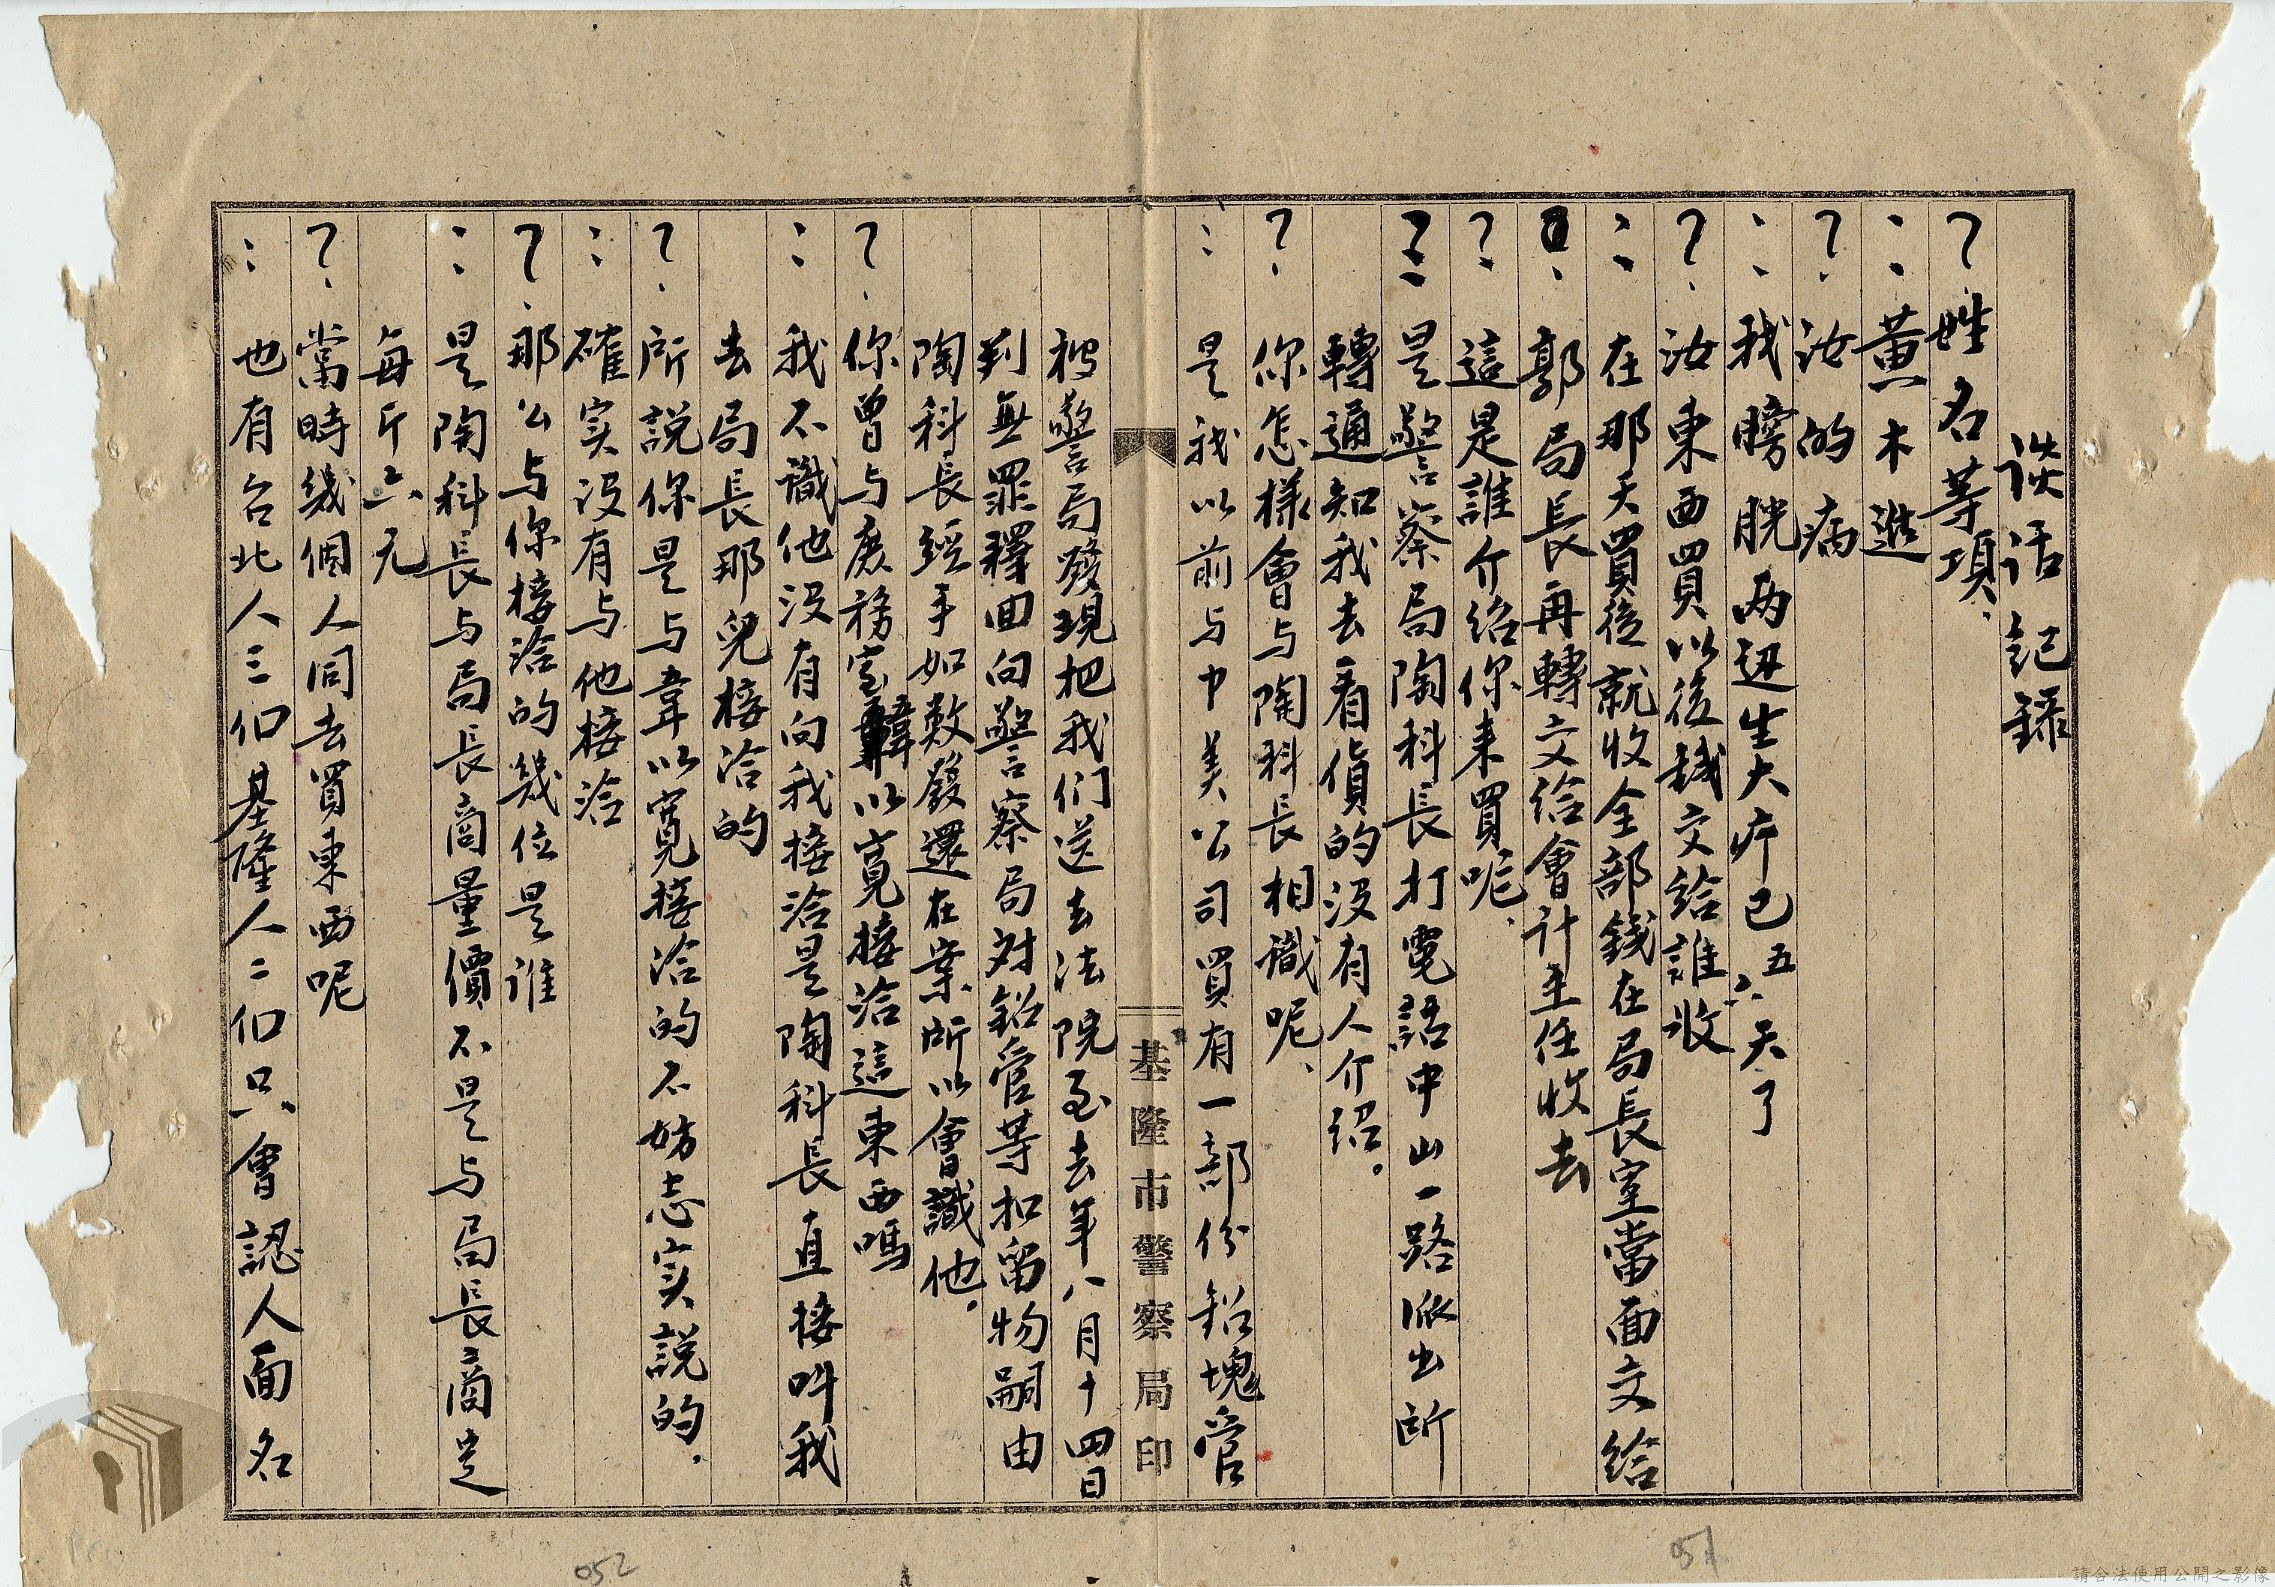 談話記錄
?姓名等項、
: 黄木進
? 汝的病
: 我膀胱两边生大疔已五六天了
? 汝東西買以後錢交給誰收
: 在那天買後就收全部錢在局長室當面交給
郭局長再轉交給會計主任收去
? 這是誰介绍你来買呢、
: 是警察局陶科長打電話中山一路派出所
轉通知我去看貨的没有人介绍。
? 你怎樣會与陶科長相識呢、
: 是我以前与中美公司買有一部份鉛塊管
基隆市警察局印
被警局發現把我们送去法院至去年八月十四日
判無罪釋回向警察局对鉛管等扣留物嗣由
陶科長經手如数發還在案所以會識他。
? 你曾与庶務室韓以寬接洽這東西嗎
: 我不識他没有向我接洽是陶科長直接叫我
去局長那兒接洽的
? 所説你是与韋以寬接洽的不妨忠実説的.
: 確実没有与他接洽
? 那公与你接洽的幾位是谁
: 是陶科長与局長商量價不是与局長商是
每斤六元
? 當時幾個人同去買東西呢
: 也有台北人三们基隆人二们只會認人面名
051
052
請合法使用公開之影像